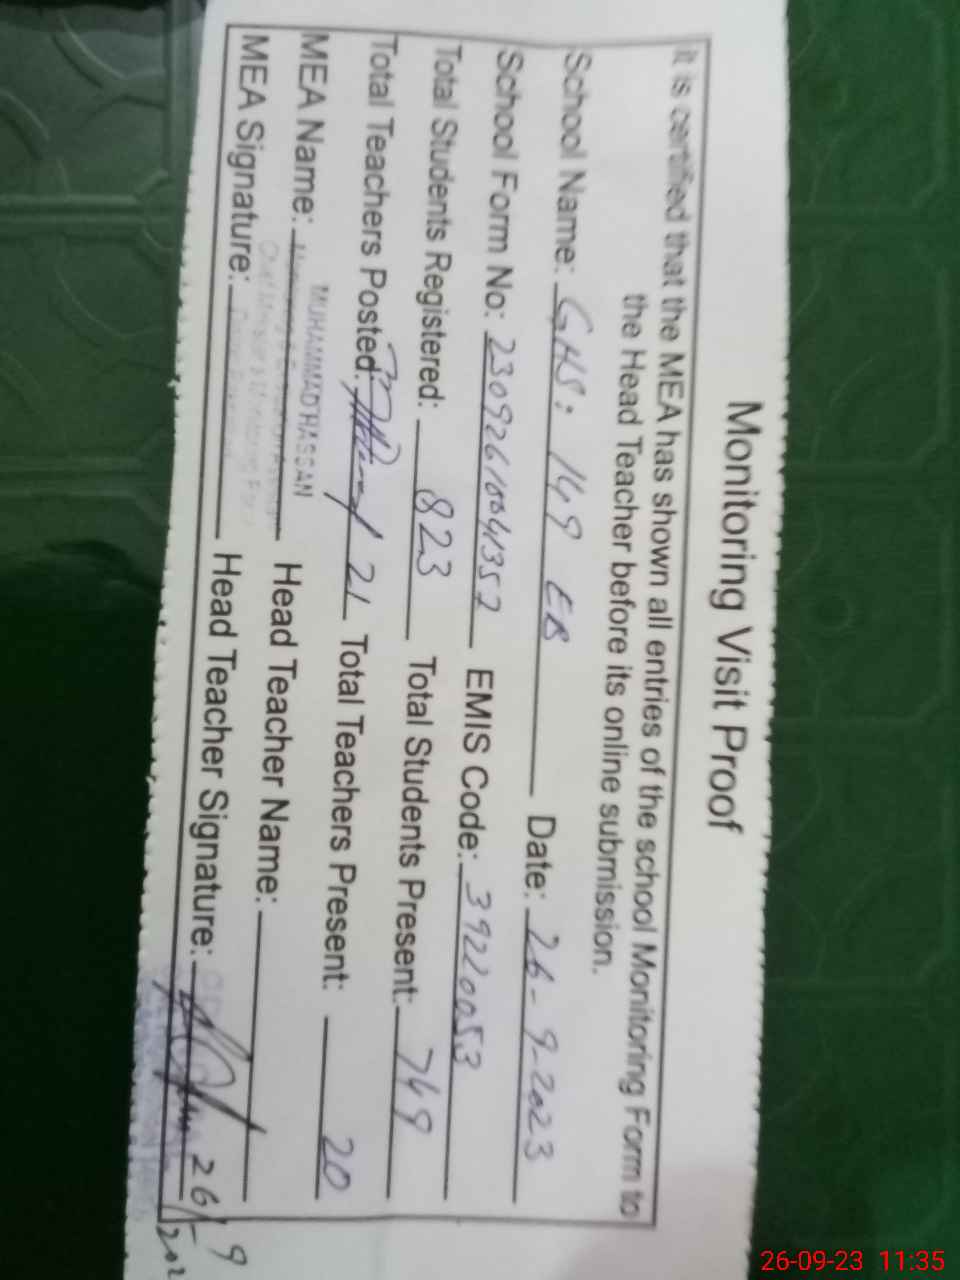 Monitoring Visit Proof
it is certified that the MEA has shown all entries of the school Monitoring Form to
the Head Teacher before its online submission.
School Name: GHS: 149 EB Date: 26-9-2023
School Form No: 23092610041357 EMIS Code: 39220053
Total Students Registered: 823 Total Students Present: 749
Total Teachers Posted: 21 Total Teachers Present: 20
MUHAMMAD HASSAN
MEA Name: Head Teacher Name:
MEA Signature: Head Teacher Signature: 26/9
202
26-09-23 11:35